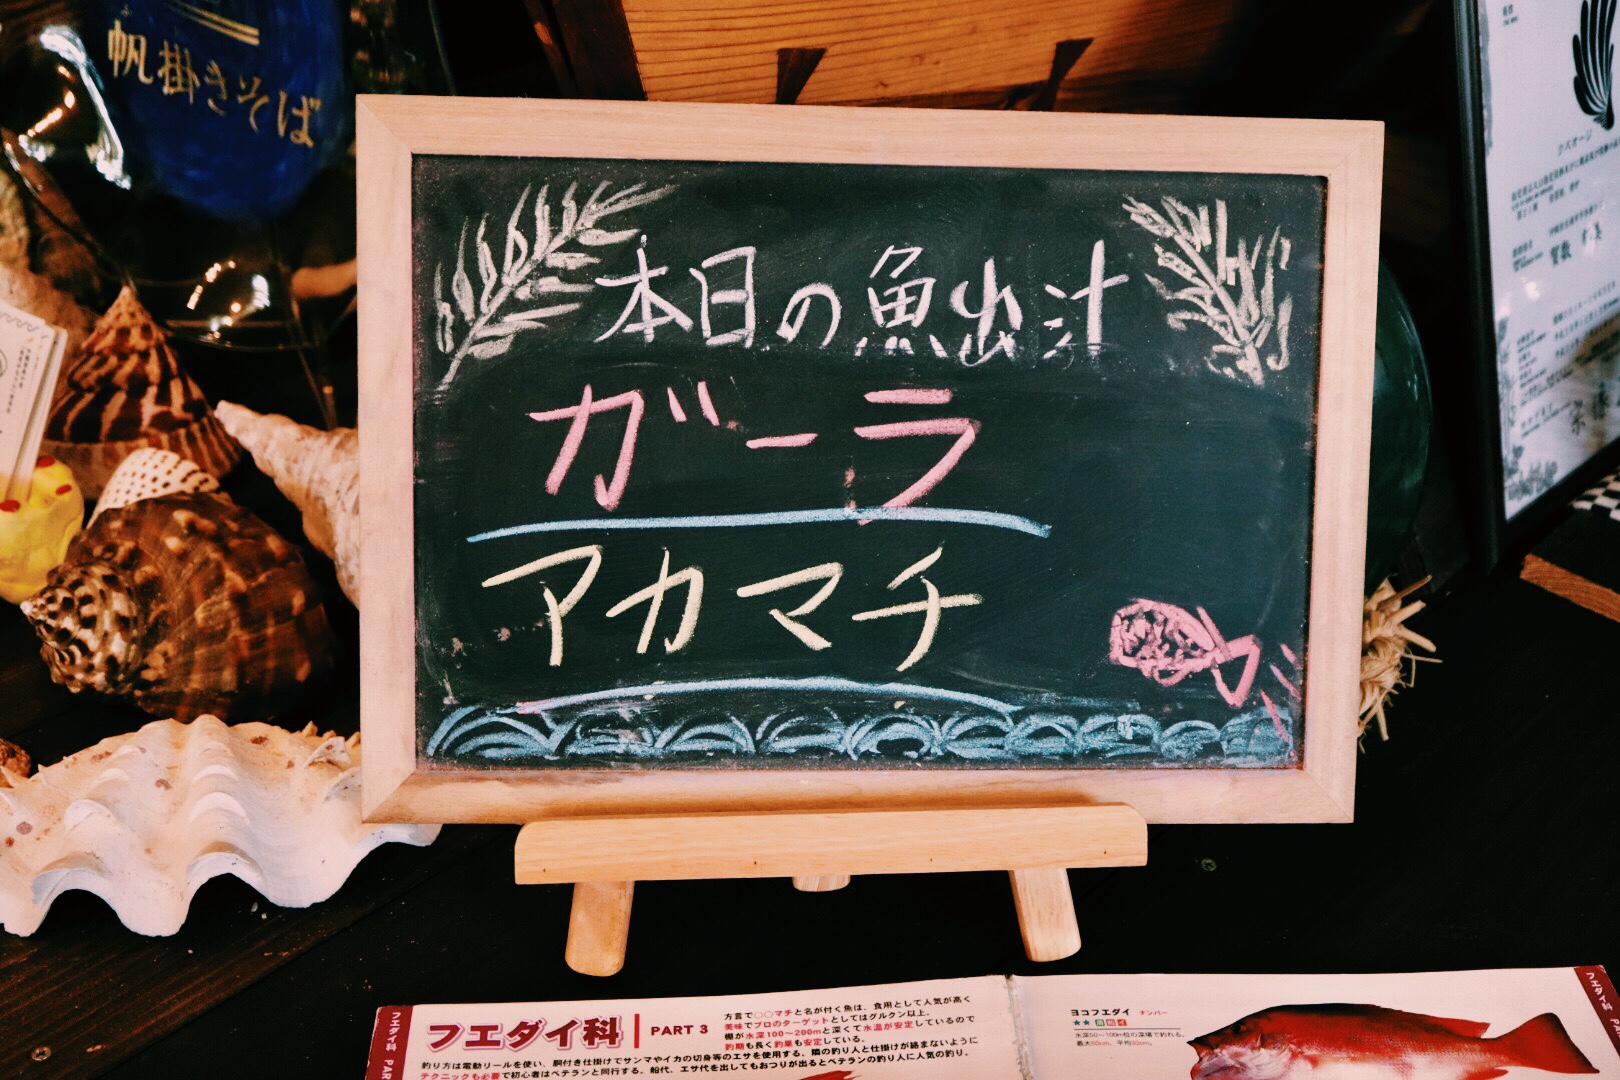 帆掛きそば
本日の魚出汁
ガーラ
アカマチ
クバオージ
フエダイ科 PART 3
方言で○○マチと名が付く魚は、食用として人気が高く
美味でプロのターゲットとしてはグルクン以上。
棚が水深100〜200mと深くて水温が安定しているので
釣期も長く釣果も安定している。
釣り方は電動リールを使い、胴付き仕掛けでサンマやイカの切身等のエサを使用する。隣の釣り人と仕掛けが絡まないように
テクニックも必要で初心者はベテランと同行する。船代、エサ代を出してもおつりが出るとベテランの釣り人に人気の釣り。
フエダイ科 PAR
ヨコフエダイ ナンバー
水深50〜100m位の深場で釣れる。
フエダイ科 P